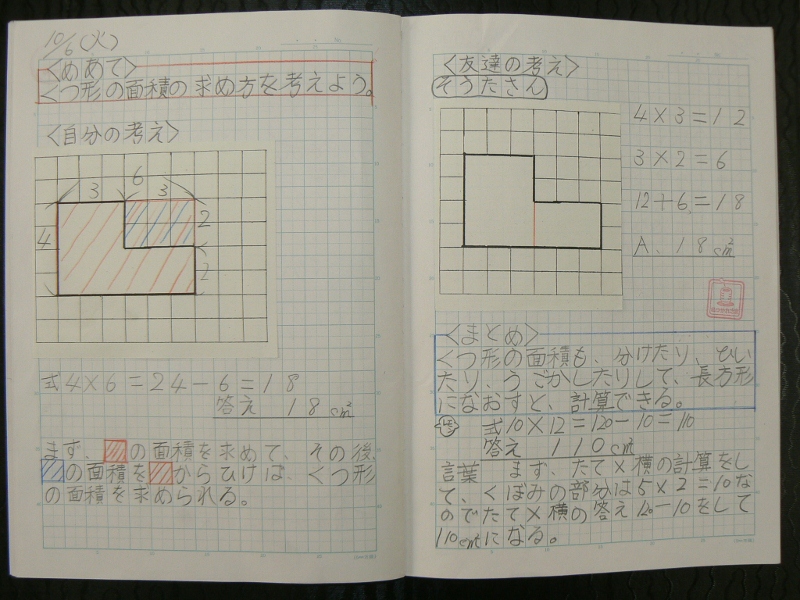 10/6(火)
〈めあて〉
くつ形の面積の求め方を考えよう。
〈自分の考え〉
6
3
3
4
2
2
式4×6=24-6=18
答え 18cm²
まず、の面積を求めて、その後、
の面積をからひけば、くつ形
の面積を求められる。
〈友達の考え〉
そうたさん
4×3=12
3×2=6
12+6=18
A. 18cm²
〈まとめ〉
くつ形の面積も、分けたり、ひい
たり、うごかしたりして、長方形
になおすと、計算できる。
式10×12=120-10=110
答え 110cm²
言葉 まず、たて×横の計算をし
て、くぼみの部分は5×2=10な
のでたて×横の答え120-10をして
110cm²になる。